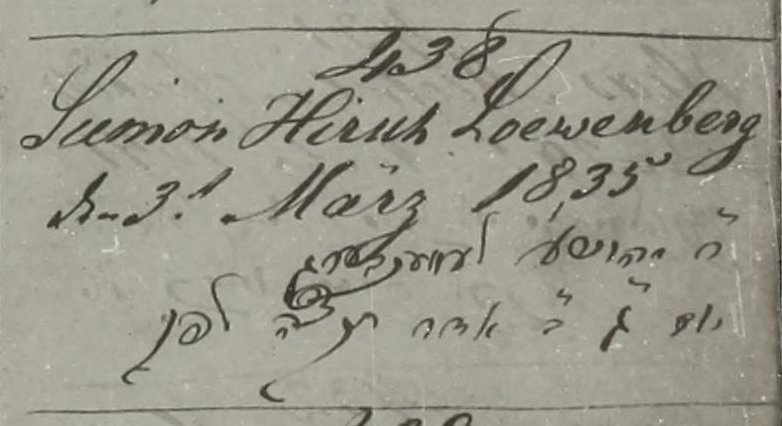 438
Siemon Hirsch Loewenberg
März 1835
ר׳ יהושע לעווענבערג
יום ג׳ ב׳ אדר תקצ״ה לפק